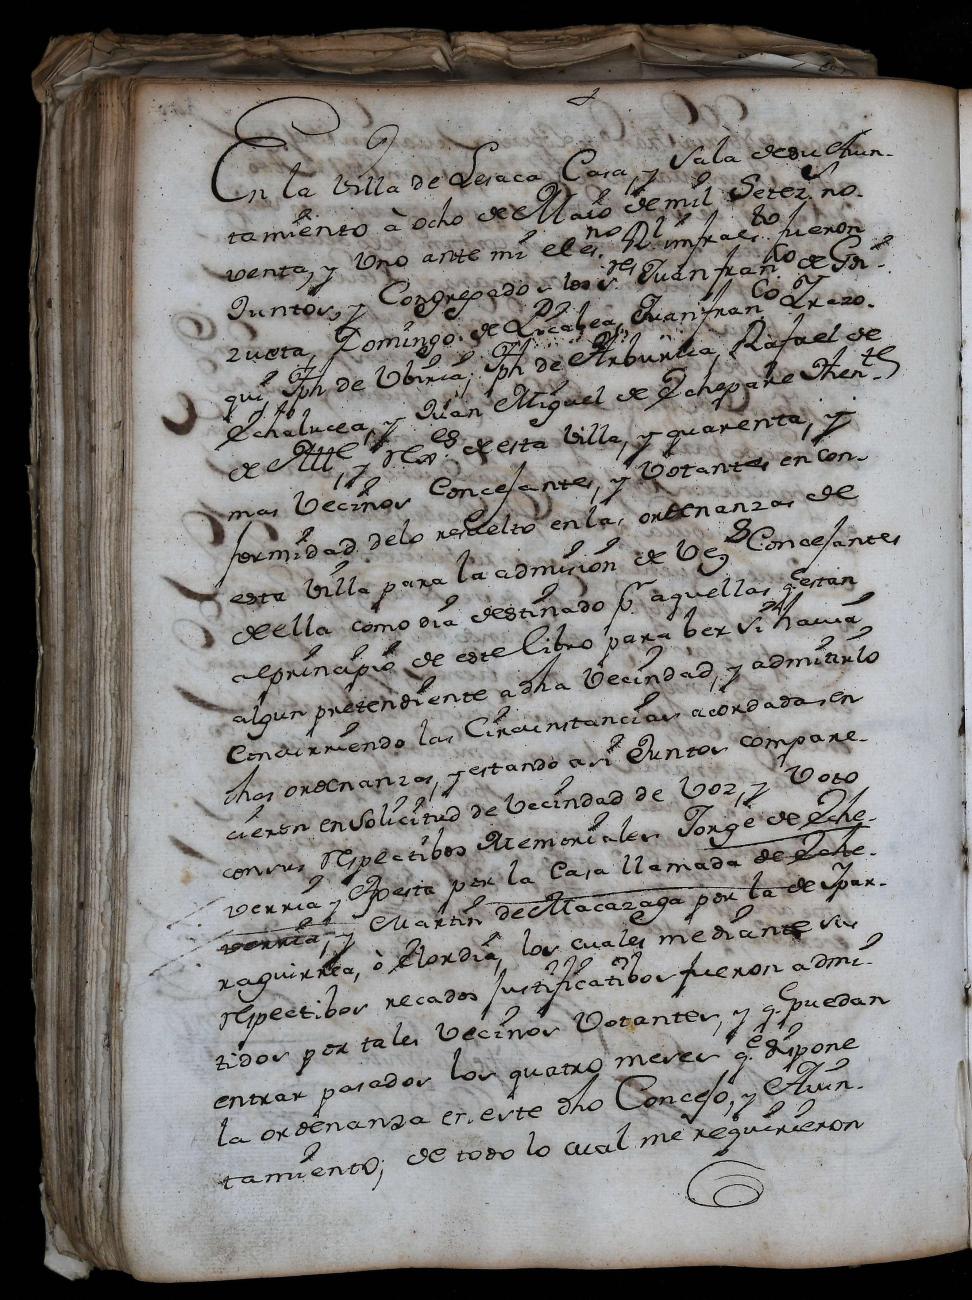 En la Villa de Lesaca Casa, y Sala de su Aiun-
tamiento à ocho de Maio de mil Setez. no-
venta, y Uno ante mi el es.no Rl infraes.to fueron
Juntos, y Congregados los s.res Juan fran.co de
zueta, Domingo de Juan fran.co Yrazo-
qui, Jph de Ubiria, Jph de Arburua, Rafael de
Echalucea, y Juan Miguel de Echepare Then.te
de Alle, y rex.es de esta Villa, y quarenta, y
mas Vecinos Concejantes, y Votantes en con-
formidad delo resuelto enlas ordenanzas de
esta Villa para la admision de Vez.s Concejantes
de ella como dia destinado pr. aquellas q.e estan
al principio de este Libro para ber si havia
algun pretendiente a dha Vecindad, y admitirlo
Concurriendo las Circunstancias acordadas en
dhas ordenanzas, y estando asi Juntos compare-
cieron en Solicitud de Vecindad de Voz, y Voto
con sus respectibos Memoriales Jorge de Eche-
verria y Apesta por la Casa llamada de Eche-
verria, y Martin de Macazaga por la de Ypar-
raguirrea, ò Elordia, los cuales mediante sus
respectibos recados justificatibos fueron admi-
tidos por tales Vecinos Votantes, y q.e puedan
entrar pasados los quatro meses q.e dispone
la ordenanza en este dho Concejo, y Aiun-
tamiento; de todo lo cual me requirieron